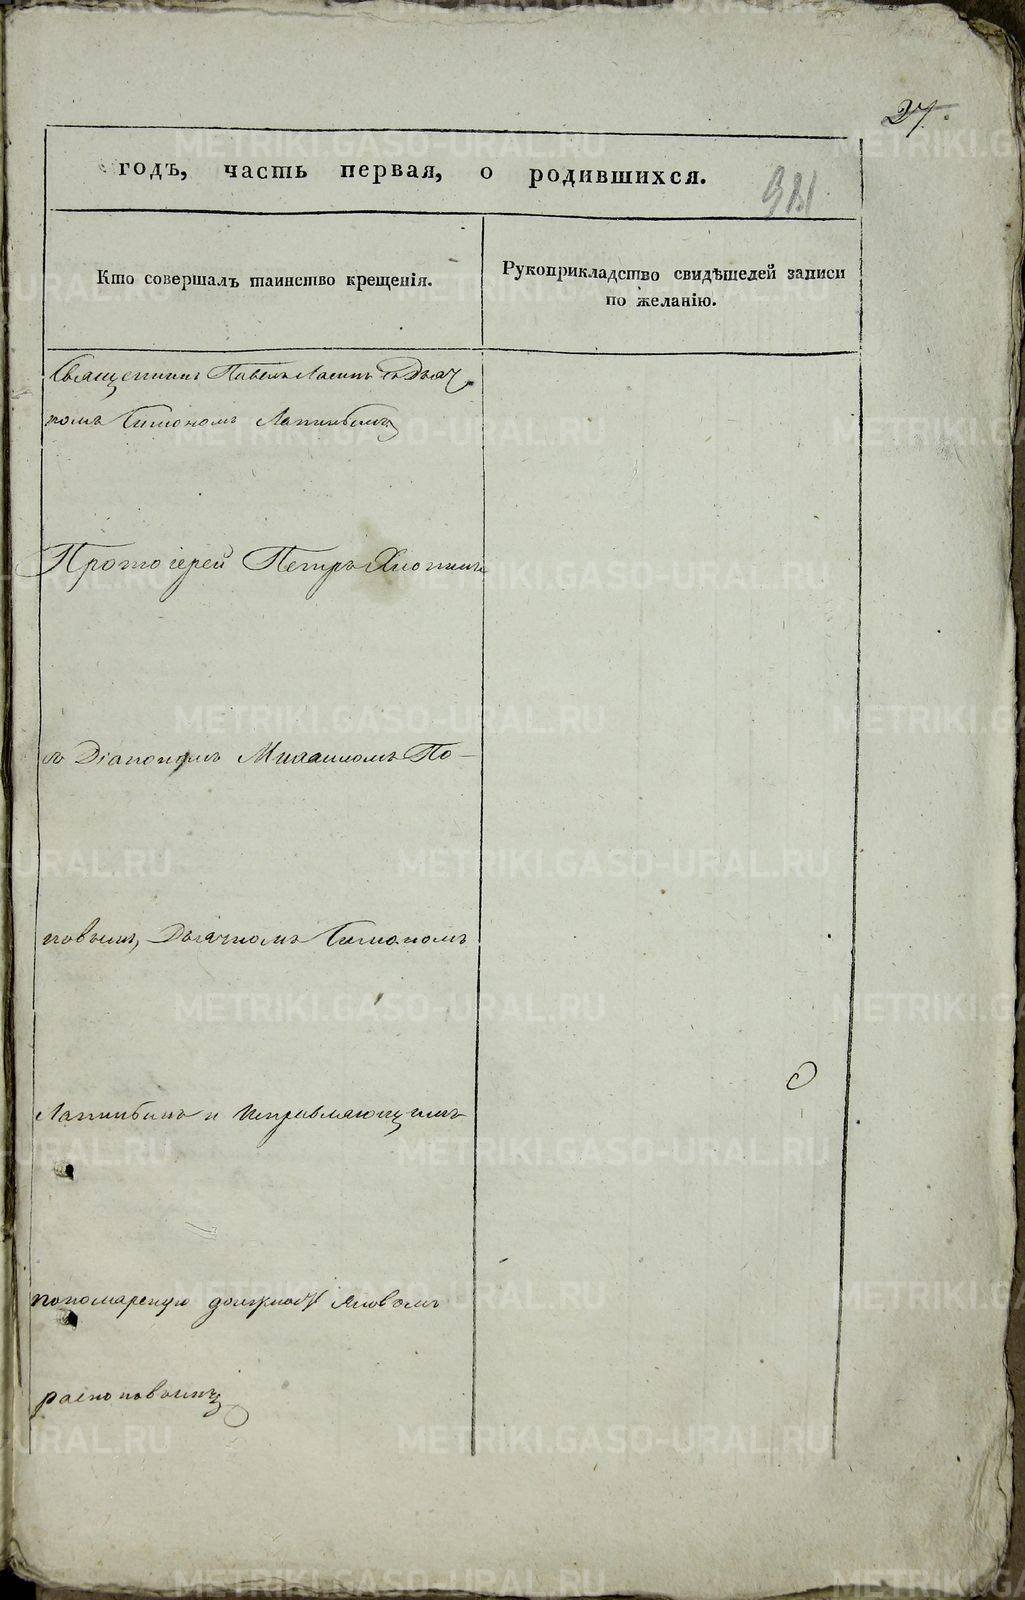 27.
годъ, часть первая, о родившихся.
931
Кто совершалъ таинство крещенія.
Рукоприкладство свидѣтелей записи
по желанію.
Священникъ Павелъ съ Дьяч
комъ Симономъ
Протоіерей Петръ
съ Діакономъ Михаиломъ По-
повымъ, Дьячкомъ Симономъ
и Исправляющимъ
пономарскую должность Яковомъ
распоповымъ
METRIKI.GASO-URAL.RU